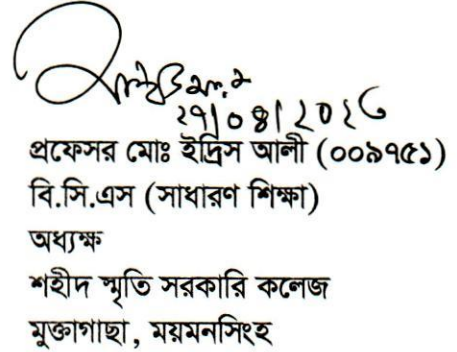 ২৭/০৪/২০২৬
প্রফেসর মোঃ ইদ্রিস আলী (০০৯৭৫১)
বি.সি.এস (সাধারণ শিক্ষা)
অধ্যক্ষ
শহীদ স্মৃতি সরকারি কলেজ
মুক্তাগাছা, ময়মনসিংহ